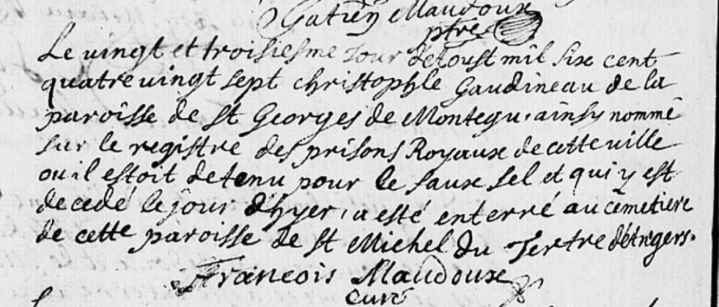 Gatien Maudoux
ptre
Le vingt et troisiesme Jour de Toust mil six cent
quatre vingt sept christophle Gaudineau de la
paroisse de St Georges de Montegu, ainsy nommé
sur le registre des prisons Royaux de cette ville
ou il estoit detenu pour le faux sel et qui y est
decedé le jour d'hyer, a esté enterré au cemetiere
de cette paroisse de St Michel du Tertre d'Angers.
Francois Maudoux
curé